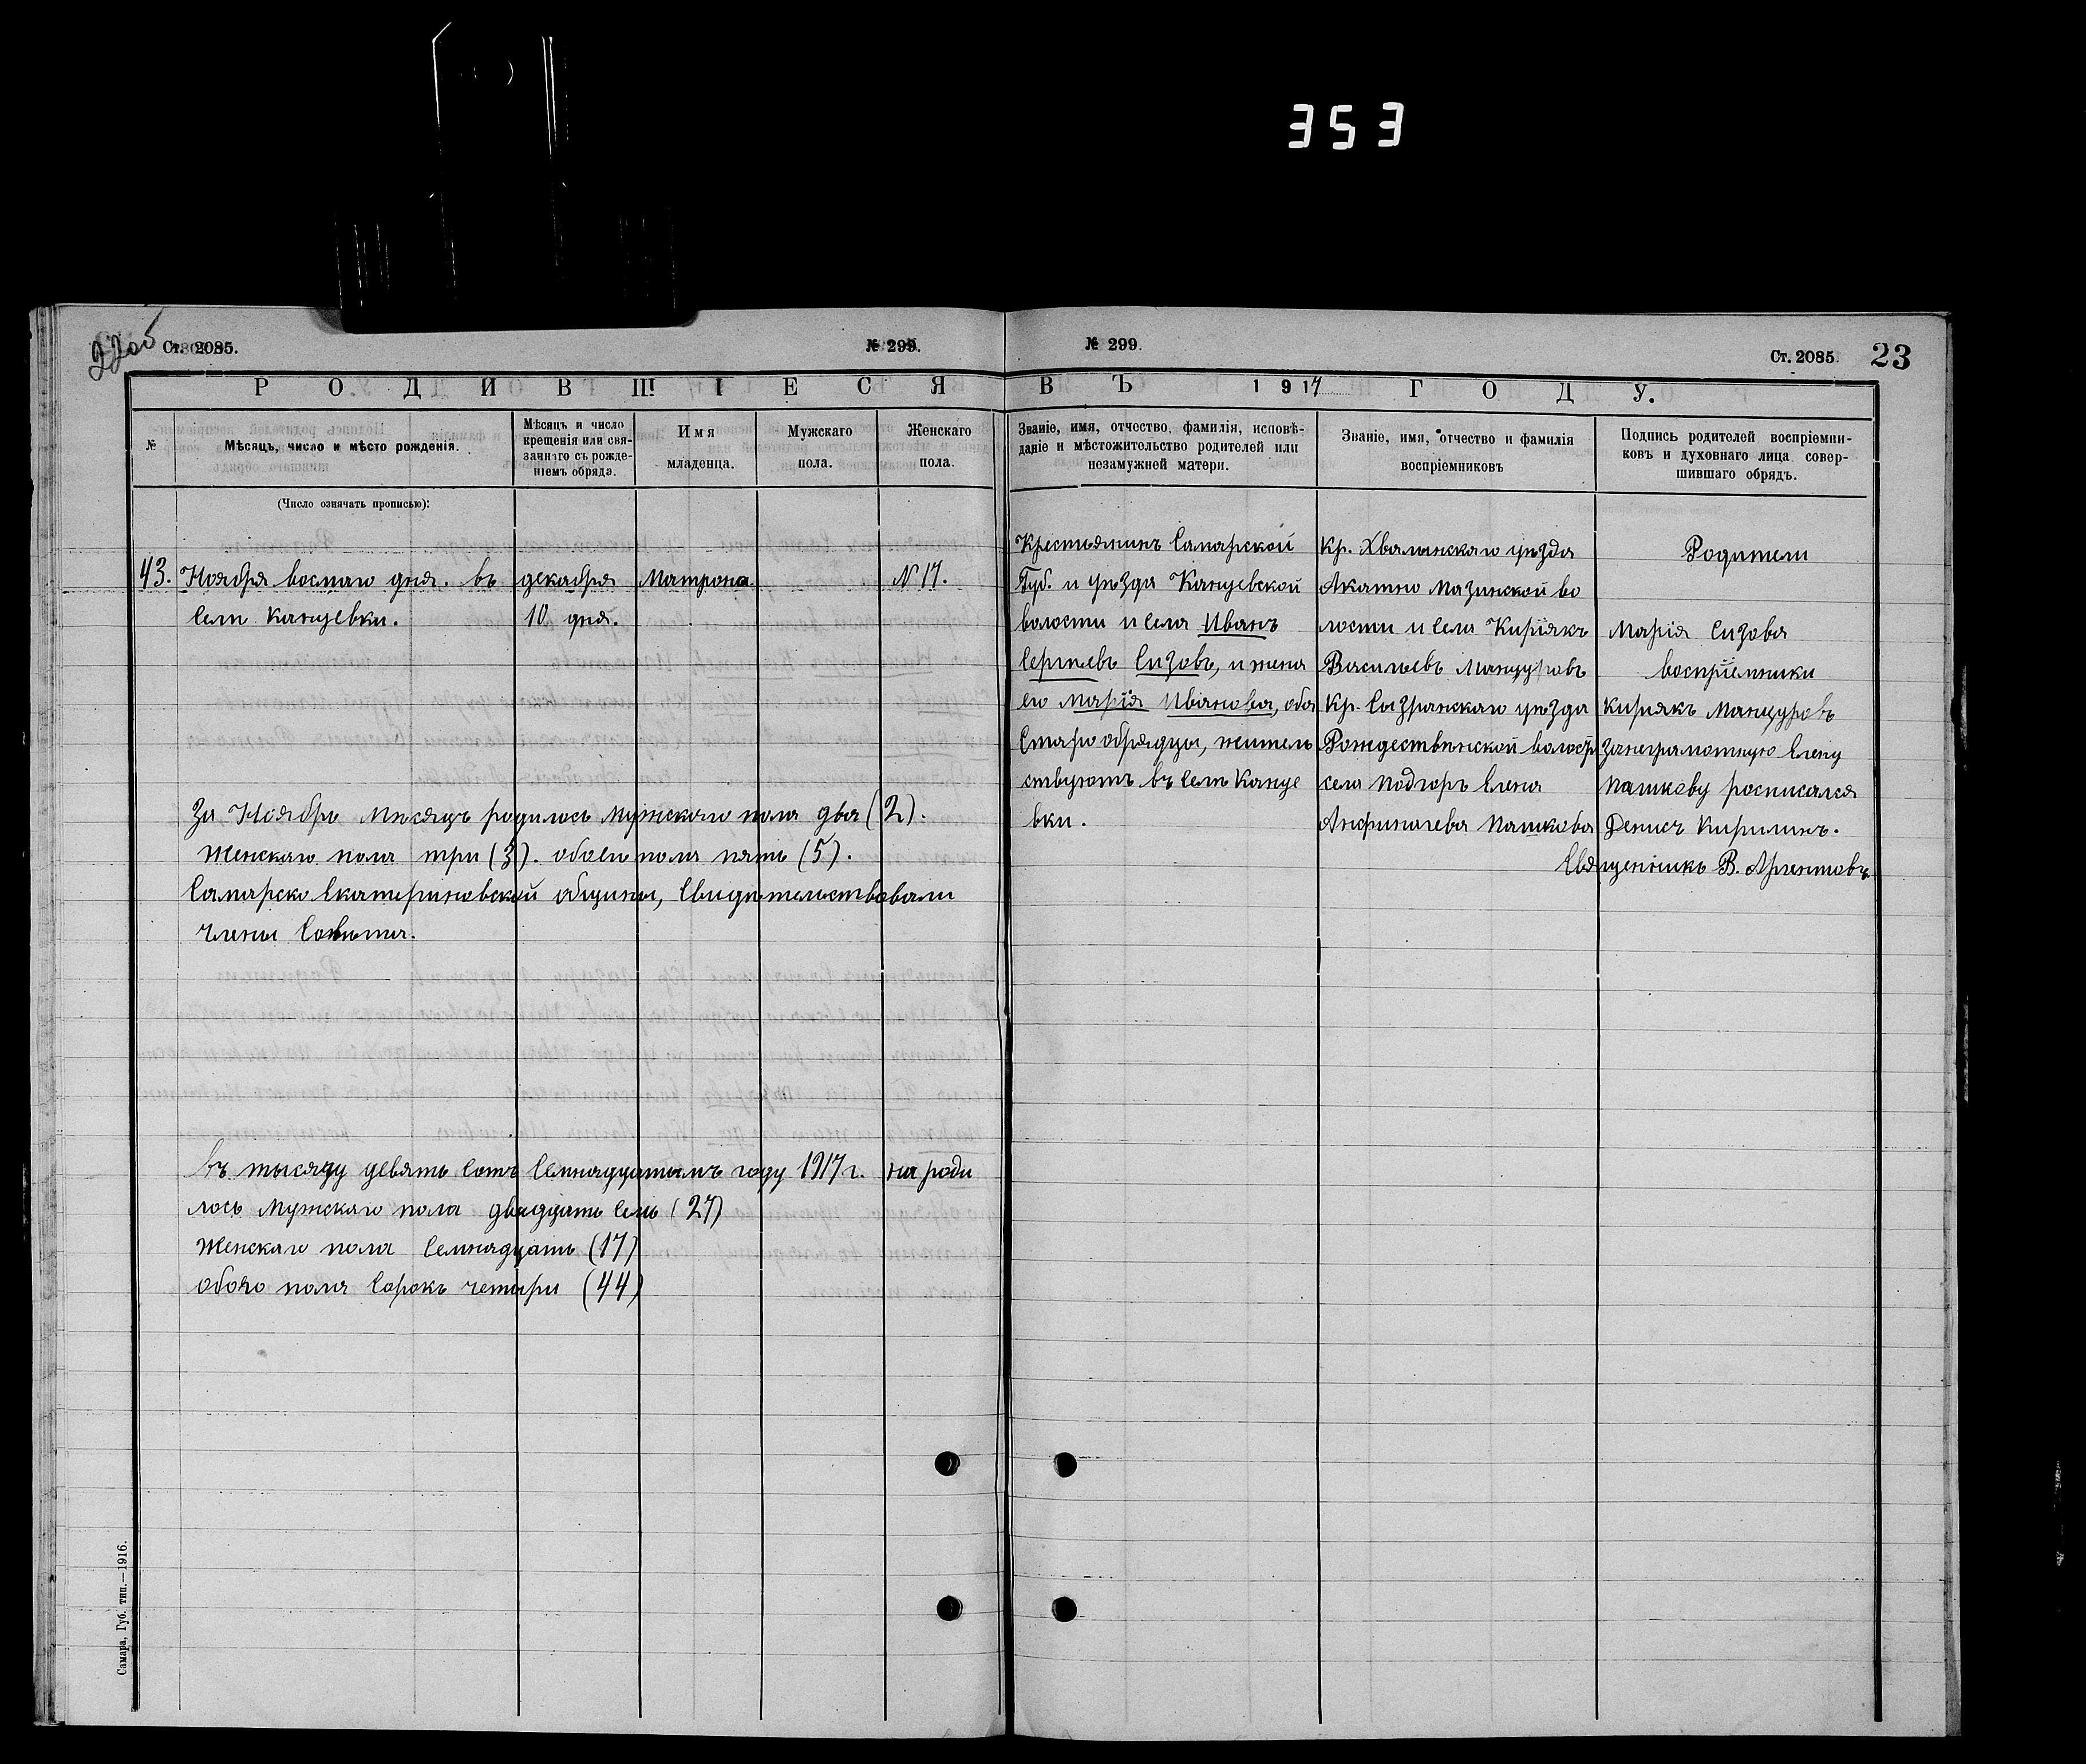 353
22об
Ст. 2085.
№ 299.
№ 299.
Ст. 2085.
23
РОДИВШІЕСЯ ВЪ 1917 ГОДУ.
№
Мѣсяцъ, число и мѣсто рожденія.
Мѣсяцъ и число
крещенія или свя-
заннаго съ рожде-
ніемъ обряда.
Имя
младенца.
Мужскаго
пола.
Женскаго
пола.
Званіе, имя, отчество, фамилія, исповѣ-
даніе и мѣстожительство родителей или
незамужней матери.
Званіе, имя, отчество и фамилія
воспріемниковъ
Подпись родителей воспріемни-
ковъ и духовнаго лица совер-
шившаго обрядъ.
(Число означать прописью):
43.
Ноября восмаго дня. въ
сели Кануевки.
декабря
10 дня.
Матрона.
№ 17.
Крестьянинъ Самарской
Губ. и уѣзда Кануевской
волости и села Иванъ
Сергѣевъ Сизовъ, и жена
его Марія Иванова, оба
Старообрядцы, житель
ствуютъ въ селѣ Кануе
вки.
Кр. Хвалынскаго уѣзда
Акатно Мазинской во
лости и села Киріякъ
Васильевъ Манцуровъ
Кр. Сызранскаго уѣзда
Рождественской волост
села Подгоръ Елена
Пашкова
Родители
Марія Сизова
воспріемники
Кирякъ Манцуровъ
занеграмотную Елену
Пашкову росписался
Денисъ Кирилинъ.
Священникъ В.
За Ноябрь мѣсяцъ родилось мужскаго пола два (2).
Женскаго пола три (3). обоего пола пять (5).
Самарско Екатериновской общины, Свидѣтельствовали
члены Совѣта.
въ тысячу девять сотъ Семнадцатымъ году 1917 г. на роди
лось Мужскаго пола двадцать семь (27)
Женскаго пола Семнадцать (17)
обого пола Сорокъ четыри (44)
Самара, Губ. тип.—1916.